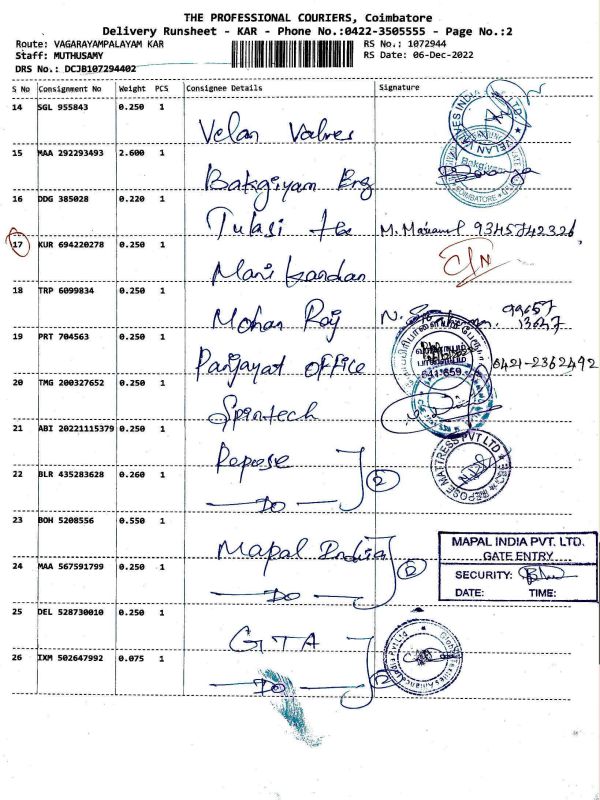 THE PROFESSIONAL COURIERS, Coimbatore
Delivery Runsheet - KAR - Phone No.:0422-3505555 - Page No.:2
Route: VAGARAYAMPALAYAM KAR
RS No.: 1072944
Staff: MUTHUSAMY
RS Date: 06-Dec-2022
DRS No.: DCJB107294402
S No Consignment No Weight PCS Consignee Details Signature
14 SGL 955843 0.250 1
Velan Valves
15 MAA 292293493 2.600 1
Bakgiyam Eng
16 DDG 385028 0.220 1
Tulasi M. 9345742326
17 KUR 694220278 0.250 1
Manikandan
18 TRP 6099834 0.250 1
Mohan Raj N. 99657
13647
19 PRT 704563 0.250 1
Panjayat office 0421-2362492
641 659
20 TMG 200327652 0.250 1
Spintech
21 ABI 20221115379 0.250 1
Repose
REPOSE MATTRESS PVT LTD
22 BLR 435283628 0.260 1
Do 2
23 BOH 5208556 0.550 1
Mapal India
MAPAL INDIA PVT. LTD.
GATE ENTRY
SECURITY:
DATE: TIME:
24 MAA 567591799 0.250 1
Do
25 DEL 528730010 0.250 1
GTA
26 IXM 502647992 0.075 1
Do